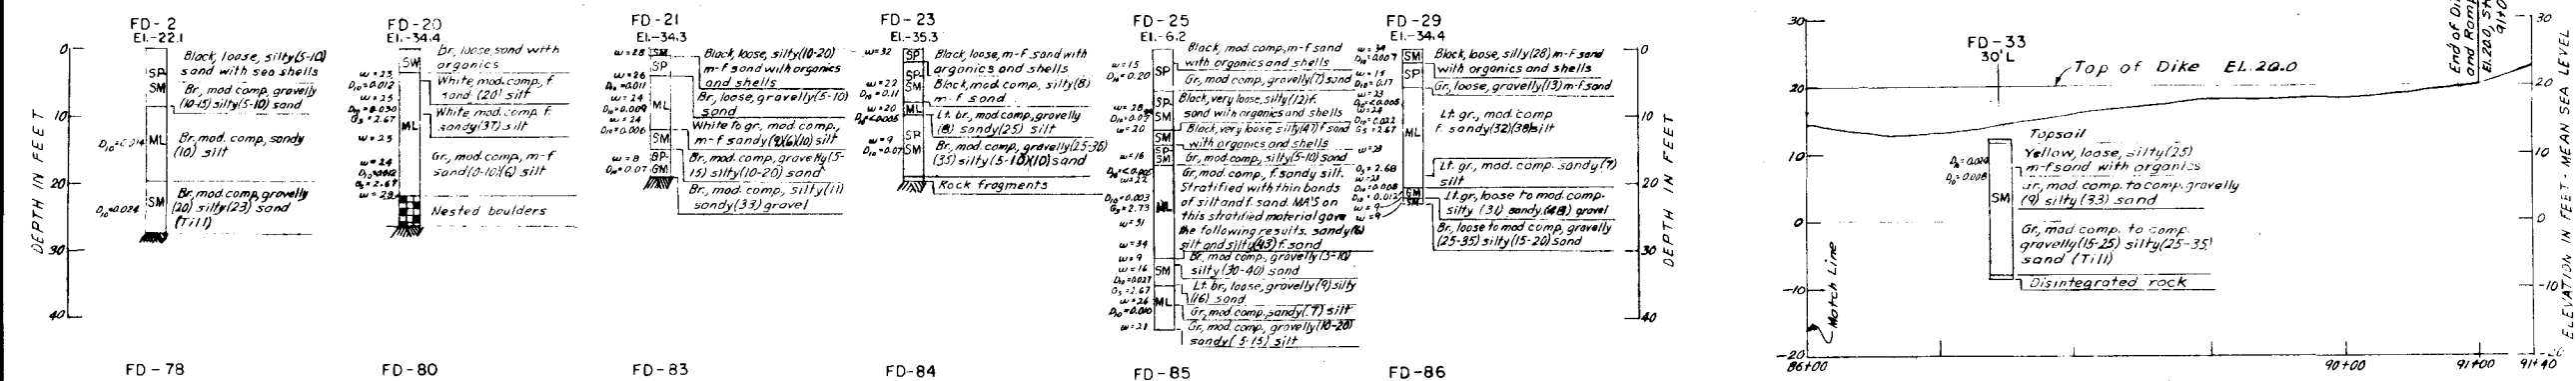 FD-2
El.-22.1
DEPTH IN FEET
0
10
20
30
40
SP
SM
ML
SM
D10=0.014
D10=0.024
Black, loose, silty(5-10)
sand with sea shells
Br, mod comp, gravelly
(10-15) silty(5-10) sand
Br, mod comp, sandy
(10) silt
Br, mod comp, gravelly
(20) silty(23) sand
(Till)
FD-20
El.-34.4
SW
ML
w=25
D10=0.012
w=25
D10=0.030
Gs=2.67
w=25
w=24
Gs=2.67
Br, loose, sand with
organics
White, mod. comp, f.
sand (20) silt
White, mod. comp f.
sandy(37) silt
Gr, mod comp, m-f
sand(0-10)(6) silt
Nested boulders
FD-21
El.-34.3
w=28
w=26
D10=0.011
w=24
D10=0.009
w=24
D10=0.006
w=8
D10=0.07
SM
SP
ML
SM
GP-
GM
Black, loose, silty(10-20)
m-f sand with organics
and shells
Br, loose, gravelly(5-10)
sand
White to gr, mod. comp.,
m-f sandy(9)(6)(10) silt
Br, mod comp, gravelly(5-
15) silty(10-20) sand
Br., mod comp, silty(11)
sandy(33) gravel
FD-23
El.-35.3
w=32
w=22
D10=0.11
w=20
D10<0.005
w=9
D10=0.07
SP
SP
SM
ML
SP
SM
Black, loose, m-f sand with
organics and shells
Black, mod comp, silty(8)
m-f sand
Lt. br, mod comp, gravelly
(8) sandy(25) silt
Br, mod comp, gravelly(25-35)
(35) silty(5-10)(10) sand
Rock fragments
FD-25
El.-6.2
w=15
D10=0.20
w=28
D10=0.07
w=20
w=16
w=22
D10=0.003
Gs=2.73
w=31
w=34
w=9
w=16
D10=0.027
Gs=2.67
w=26
D10=0.010
w=21
SP
SP
SM
SM
SP
SM
ML
SM
ML
Black, mod. comp, m-f sand
with organics and shells
Gr, mod comp, gravelly(7) sand
Black, very loose, silty(12) f.
sand with organics and shells
Black, very loose, silty(47) f sand
with organics and shells
Gr, mod comp, silty(5-10) sand
Gr, mod comp, f. sandy silt.
Stratified with thin bands
of silt and f. sand. MA'S on
this stratified material gave
the following results. sandy(6)
silt and silty(43) f. sand
Br, mod comp, gravelly(5-10)
silty(30-40) sand
Lt. br, loose, gravelly(9) silty
(16) sand
Gr, mod. comp, sandy(7) silt
Gr, mod. comp, gravelly(10-20)
sandy(5-15) silt
FD-29
El.-34.4
w=34
D10=0.007
w=15
D10=0.17
w=23
D10<0.005
D10=0.022
Gs=2.67
w=23
Gs=2.68
w=23
D10=0.008
D10=0.012
w=9
w=9
SM
SP
ML
GM
SM
Black, loose, silly(28) m-f sand
with organics and shells
Gr, loose, gravelly(13) m-f sand
Lt. gr, mod. comp
f. sandy(32)(38) silt
Lt. gr, mod. comp. sandy(7)
silt
Lt. gr, loose to mod. comp.
silty (31) sandy (48) gravel
Br, loose to mod comp, gravelly
(25-35) silty(15-20) sand
0
10
20
30
40
DEPTH IN FEET
30
20
10
0
-10
-20
FD-33
30'L
Top of Dike EL.20.0
End of Di
and Ramp
El.20.0, St
91+0
D10=0.024
D10=0.008
SM
Topsail
Yellow, loose, silty(25)
m-f sand with organics
Gr, mod. comp. to comp. gravelly
(9) silty (33) sand
Gr, mod. comp. to comp.
gravelly(15-25) silty(25-35)
sand (Till)
Disintegrated rock
Match Line
86+00
90+00
91+00
91+40
30
20
10
0
-10
-20
ELEVATION IN FEET - MEAN SEA LEVEL
FD-78
FD-80
FD-83
FD-84
FD-85
FD-86